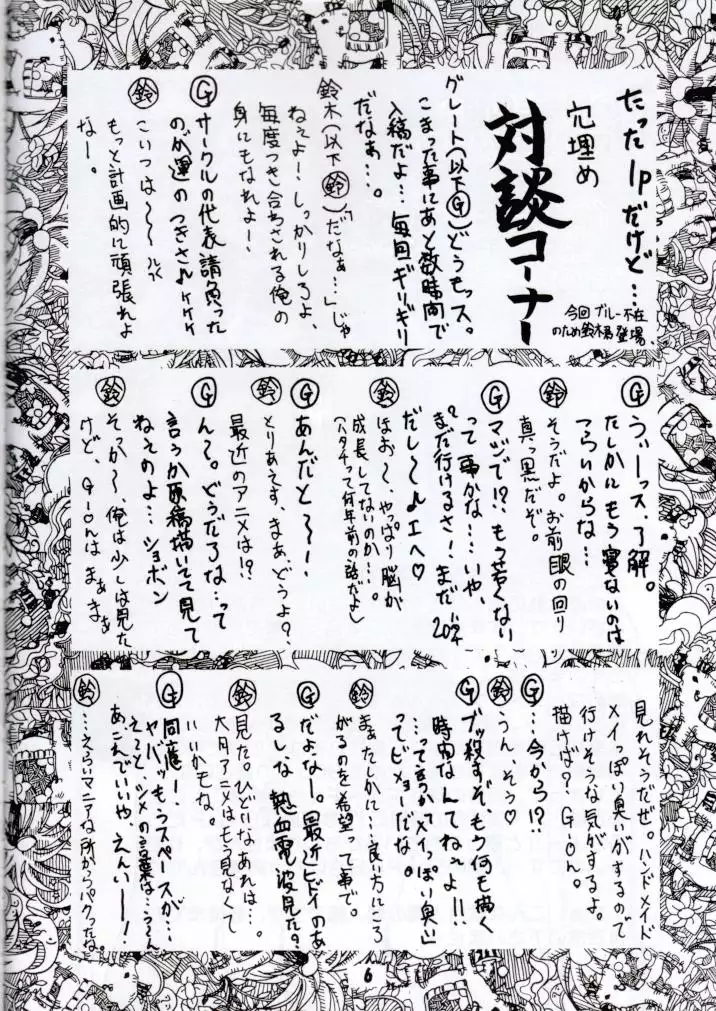 たった1pだけど…
穴埋め
対談コーナー
今回ブルー不在
のため鈴木君登場。
グレート(以下G)どうもっス。
こまった事にあと数時間で
入稿だよ…毎回ギリギリ
だなぁ…。
鈴木(以下鈴)「だなぁ…」じゃ
ねぇよ!しっかりしろよ、
毎度つき合わされる俺の
身にもなれよー!
G サークルの代表請負った
のが運のつきさ♪ケケケ
鈴 こいつは〜〜〜
もっと計画的に頑張れよ
なー。
G うぃーっス、了解。
たしかにもう寝ないのは
つらいからな…
鈴 そうだよ。お前眼の回り
真っ黒だぞ。
G マジで!?もう若くない
って事かな……いや、
まだ行けるさ!まだ20才
だし〜♪エヘ♡
鈴 ほお〜、やっぱり脳が
成長してないのか…。
(ハタチって何年前の話だよ)
G あんだと〜!
鈴 とりあえず、まあどうよ?
最近のアニメは!?
G ん〜。どうだろな…って
言うか原稿描いてて見て
ねぇのよ…ショボン
鈴 そっか〜、俺は少しは見た
けど、G-onはまぁまぁ
見れそうだぜ。ハンドメイド
メイっぽい臭いがするので
行けそうな気がするよ。
描けば?G-on。
G …今から!?
鈴 うん、そう♡
G ブッ殺すぞ、もう何も描く
時間なんてねぇよ!!
…って言うかメイっぽい臭い
ってビミョーだな。
鈴 まぁたしかに…良い方にころ
がるのを希望って事で
G だよなー。最近ヒドイのあ
るしな、熱血電波見た?
鈴 見た。ひどいなあれは…。
大月アニメはもう見なくて
いいかもな。
G 同感ー、
ヤバッもうスペースが…
ええと、シメの言葉は…う〜ん
あこんでいいや、えんぃー!
鈴 …えらいマニアな所からパクったね。
6